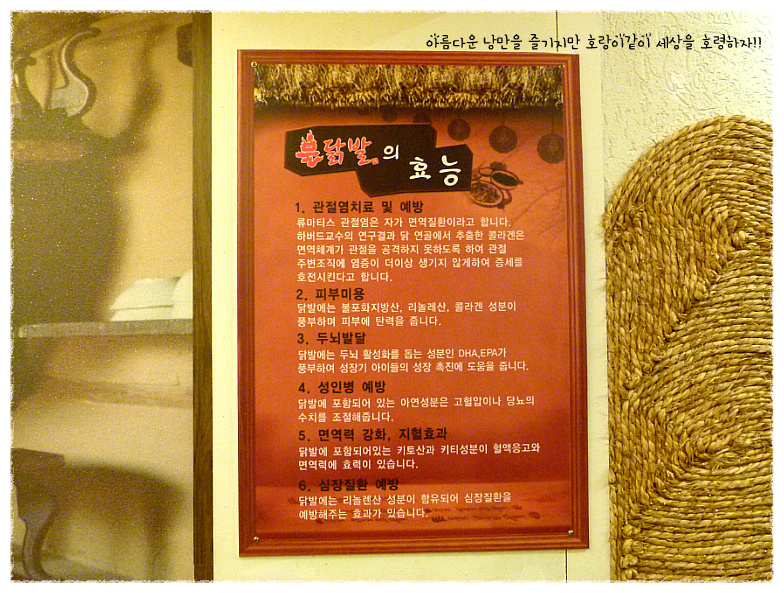 아름다운 낭만을 즐기지만 호랑이같이 세상을 호령하자!!
불닭발의
효능
1. 관절염치료 및 예방
류마티스 관절염은 자가 면역질환이라고 합니다.
하버드교수의 연구결과 닭 연골에서 추출한 콜라겐은
면역체계가 관절을 공격하지 못하도록 하여 관절
주변조직에 염증이 더이상 생기지 않게하여 증세를
호전시킨다고 합니다.
2. 피부미용
닭발에는 불포화지방산, 리놀레산, 콜라겐 성분이
풍부하며 피부에 탄력을 줍니다.
3. 두뇌발달
닭발에는 두뇌 활성화를 돕는 성분인 DHA,EPA가
풍부하여 성장기 아이들의 성장 촉진에 도움을 줍니다.
4. 성인병 예방
닭발에 포함되어 있는 아연성분은 고혈압이나 당뇨의
수치를 조절해줍니다.
5. 면역력 강화, 지혈효과
닭발에 포함되어있는 키토산과 키티성분이 혈액응고와
면역력에 효력이 있습니다.
6. 심장질환 예방
닭발에는 리놀렌산 성분이 함유되어 심장질환을
예방해주는 효과가 있습니다.